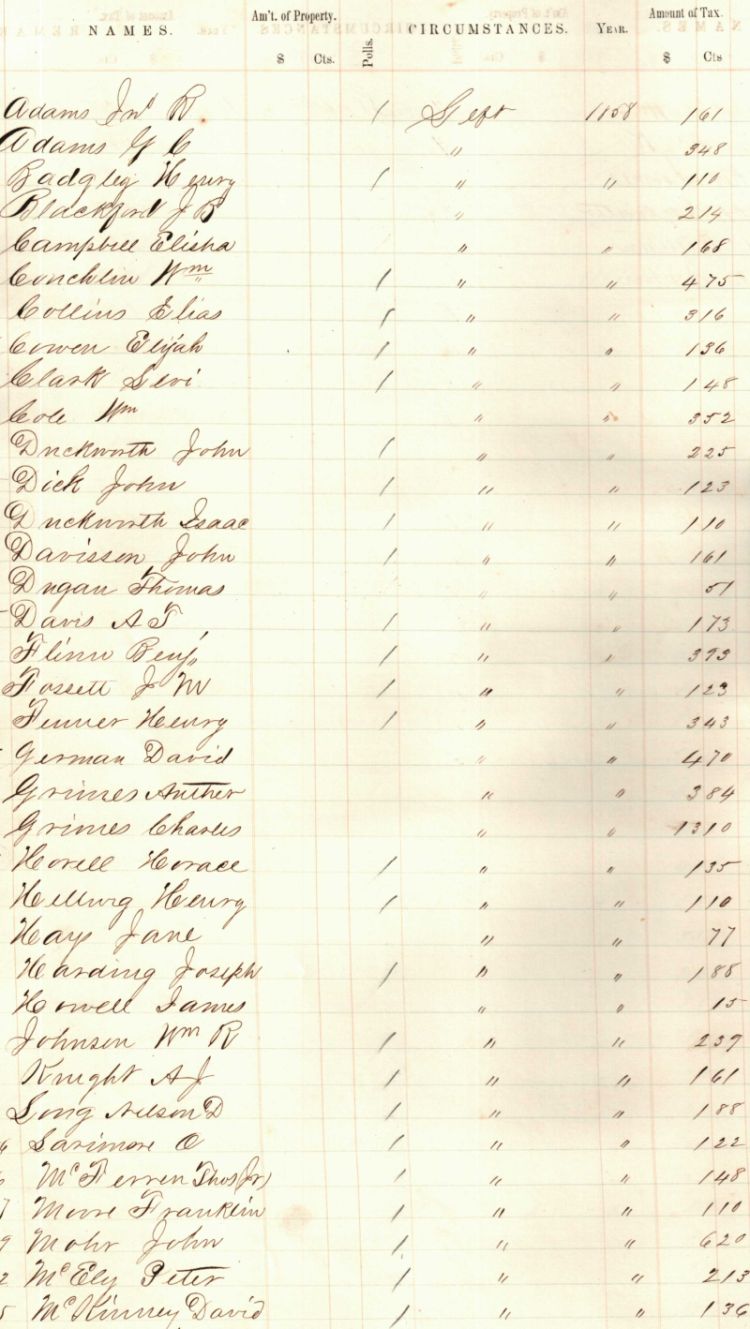 NAMES. Am't. of Property. Polls. CIRCUMSTANCES. YEAR. Amount of Tax.
$ Cts. $ Cts
Adams Jnº R. / Left 1858 161
Adams G C " 348
Badgley Henry / " " 110
Blackford J B " 214
Campbell Elisha " " 168
Conchlin Wm / " " 475
Collins Elias / " " 316
Cowen Elijah / " " 136
Clark Levi / " " 148
Cole Wm " " 352
Duckworth John / " " 225
Dick John / " " 123
Duckworth Isaac / " " 110
Davisson John / " " 161
Dugan Thomas " " 51
Davis A T / " " 173
Flinn Benj, / " " 393
Fossett J M / " " 123
Fenner Henry / " " 343
German David " " 470
Grimes " " 384
Grimes Charles " " 1310
Horell Horace / " " 135
Hellwig Henry / " " 110
Hays Jane " " 77
Harding Joseph / " " 188
Howell James " " 15
Johnson Wm R / " " 239
Knight A J / " " 161
Long Nelson D / " " 188
Larimore O / " " 122
McFerren Thos (Jr) / " " 148
Moore Franklin / " " 110
Mohr John / " " 620
McEly Peter / " " 213
McKinney David / " " 136